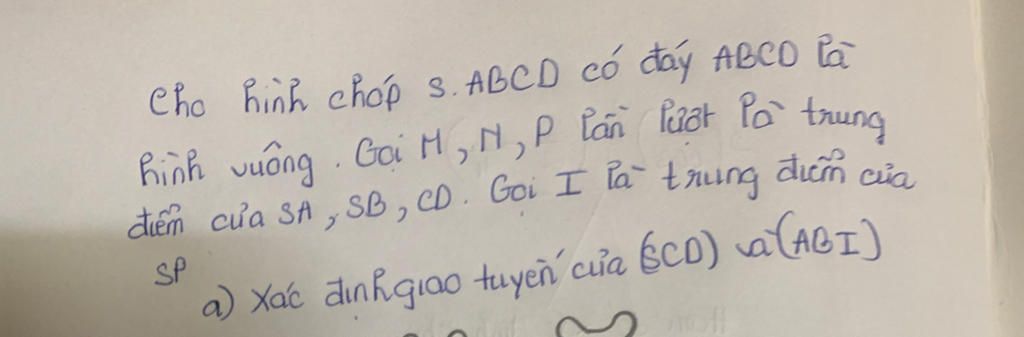 Cho hình chóp S.ABCD có đáy ABCD là
hình vuông. Gọi M, N, P lần lượt là trung
điểm của SA, SB, CD. Gọi I là trung điểm của
SP
a) Xác định giao tuyến của (SCD) và (ABI)